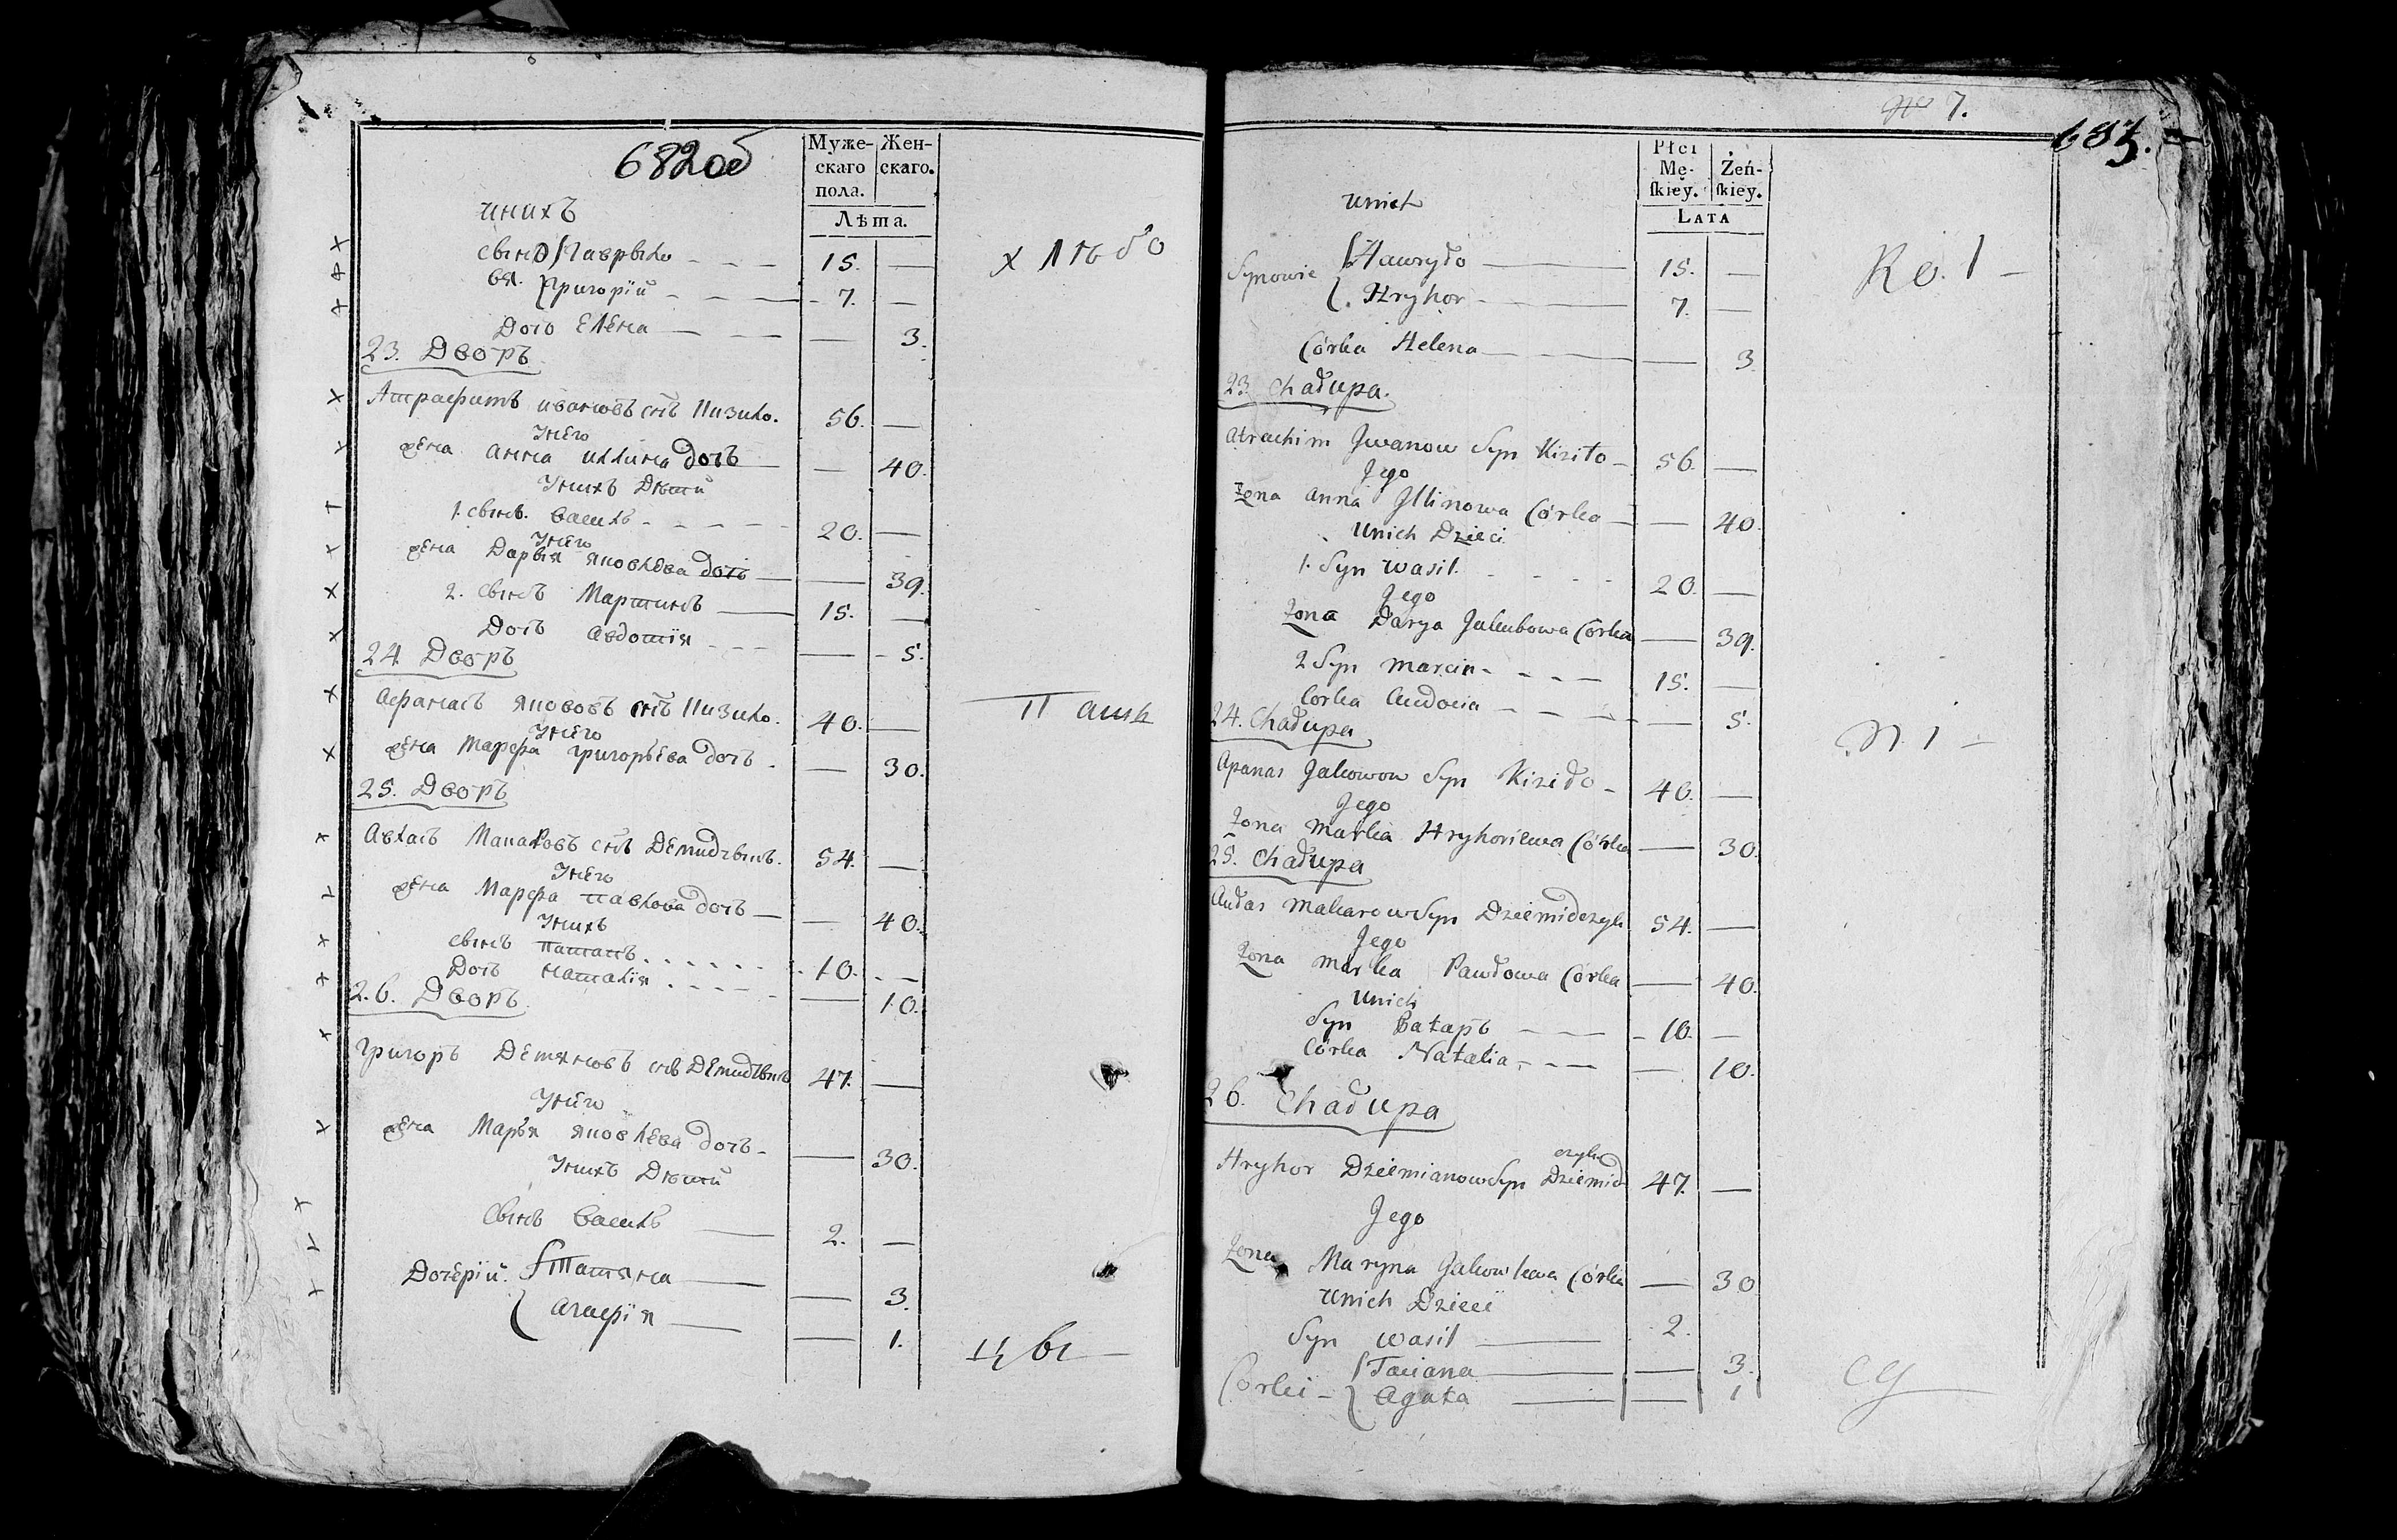 682 об
Муже-
скаго
пола.
Жен-
скаго.
Лѣта.
унихъ
Гаврыло 15. —
Григорїй 7. —
Дочь Елена — 3.
23. Дворъ
Ивановъ снъ Кизило. 56. —
Унего
жена Анна Иллина дочь — 40.
Унихъ Дѣтй
1. сынъ. Василь 20. —
Унего
жена Дарыя Яковлева дочь — 39.
2. Сынъ Мартинъ 15. —
Дочь Авдотїя — 5.
24 Дворъ
Афанасъ Якововъ снъ Кизило. 40. —
Унего
жена Марфа Григорьева дочь — 30.
25. Дворъ
Авласъ Макаровъ снъ Демидчыкъ. 54. —
Унего
жена Марфа Павлова дочь — 40.
Унихъ
сынъ Паталъ 10. —
Дочь Наталїя — 10.
26. Дворъ
Григоръ Демяновъ снъ Демидчыкъ 47. —
Унего
жена Марыя Яковлева дочь — 30.
Унихъ Дѣтй
Сынъ Василь 2. —
Дочерїй. Татяна — 3.
Агафїя — 1.
хлѣбо
цы
7.
683.
Płci
Mę-
ſkiey.
Żeń-
ſkiey.
LATA
Unich
Synowie Hawryło 15. —
Hryhor 7. —
Córka Helena — 3
23. Chałupa.
Atrachim Jwanow Syn Kiziło 56. —
Jego
Żona Anna Jllinowa Córka — 40.
Unich Dzieci
1. Syn Wasil. 20. —
Jego
Żona Darya Jakubowa Córka — 39.
2 Syn Marcin 15. —
Corka Audocia — 5.
24. Chałupa
Apanas Jakowow Syn Kiziło 40. —
Jego
Żona Marka Hryhoriewa Córka — 30.
25. Chałupa
Aułas Makarow Syn Dziemidczyk 54. —
Jego
Żona Marka Pawłowa Córka — 40.
Unich
Syn 10. —
Córka Natalia — 10.
26. Chałupa
Hryhor Dziemianow Syn Dziemid czyk 47. —
Jego
Żona Maryna Jakowlewa Córka — 30
Unich Dzieci
Syn Wasil 2.
Corki Taciana — 3.
Agata — 1